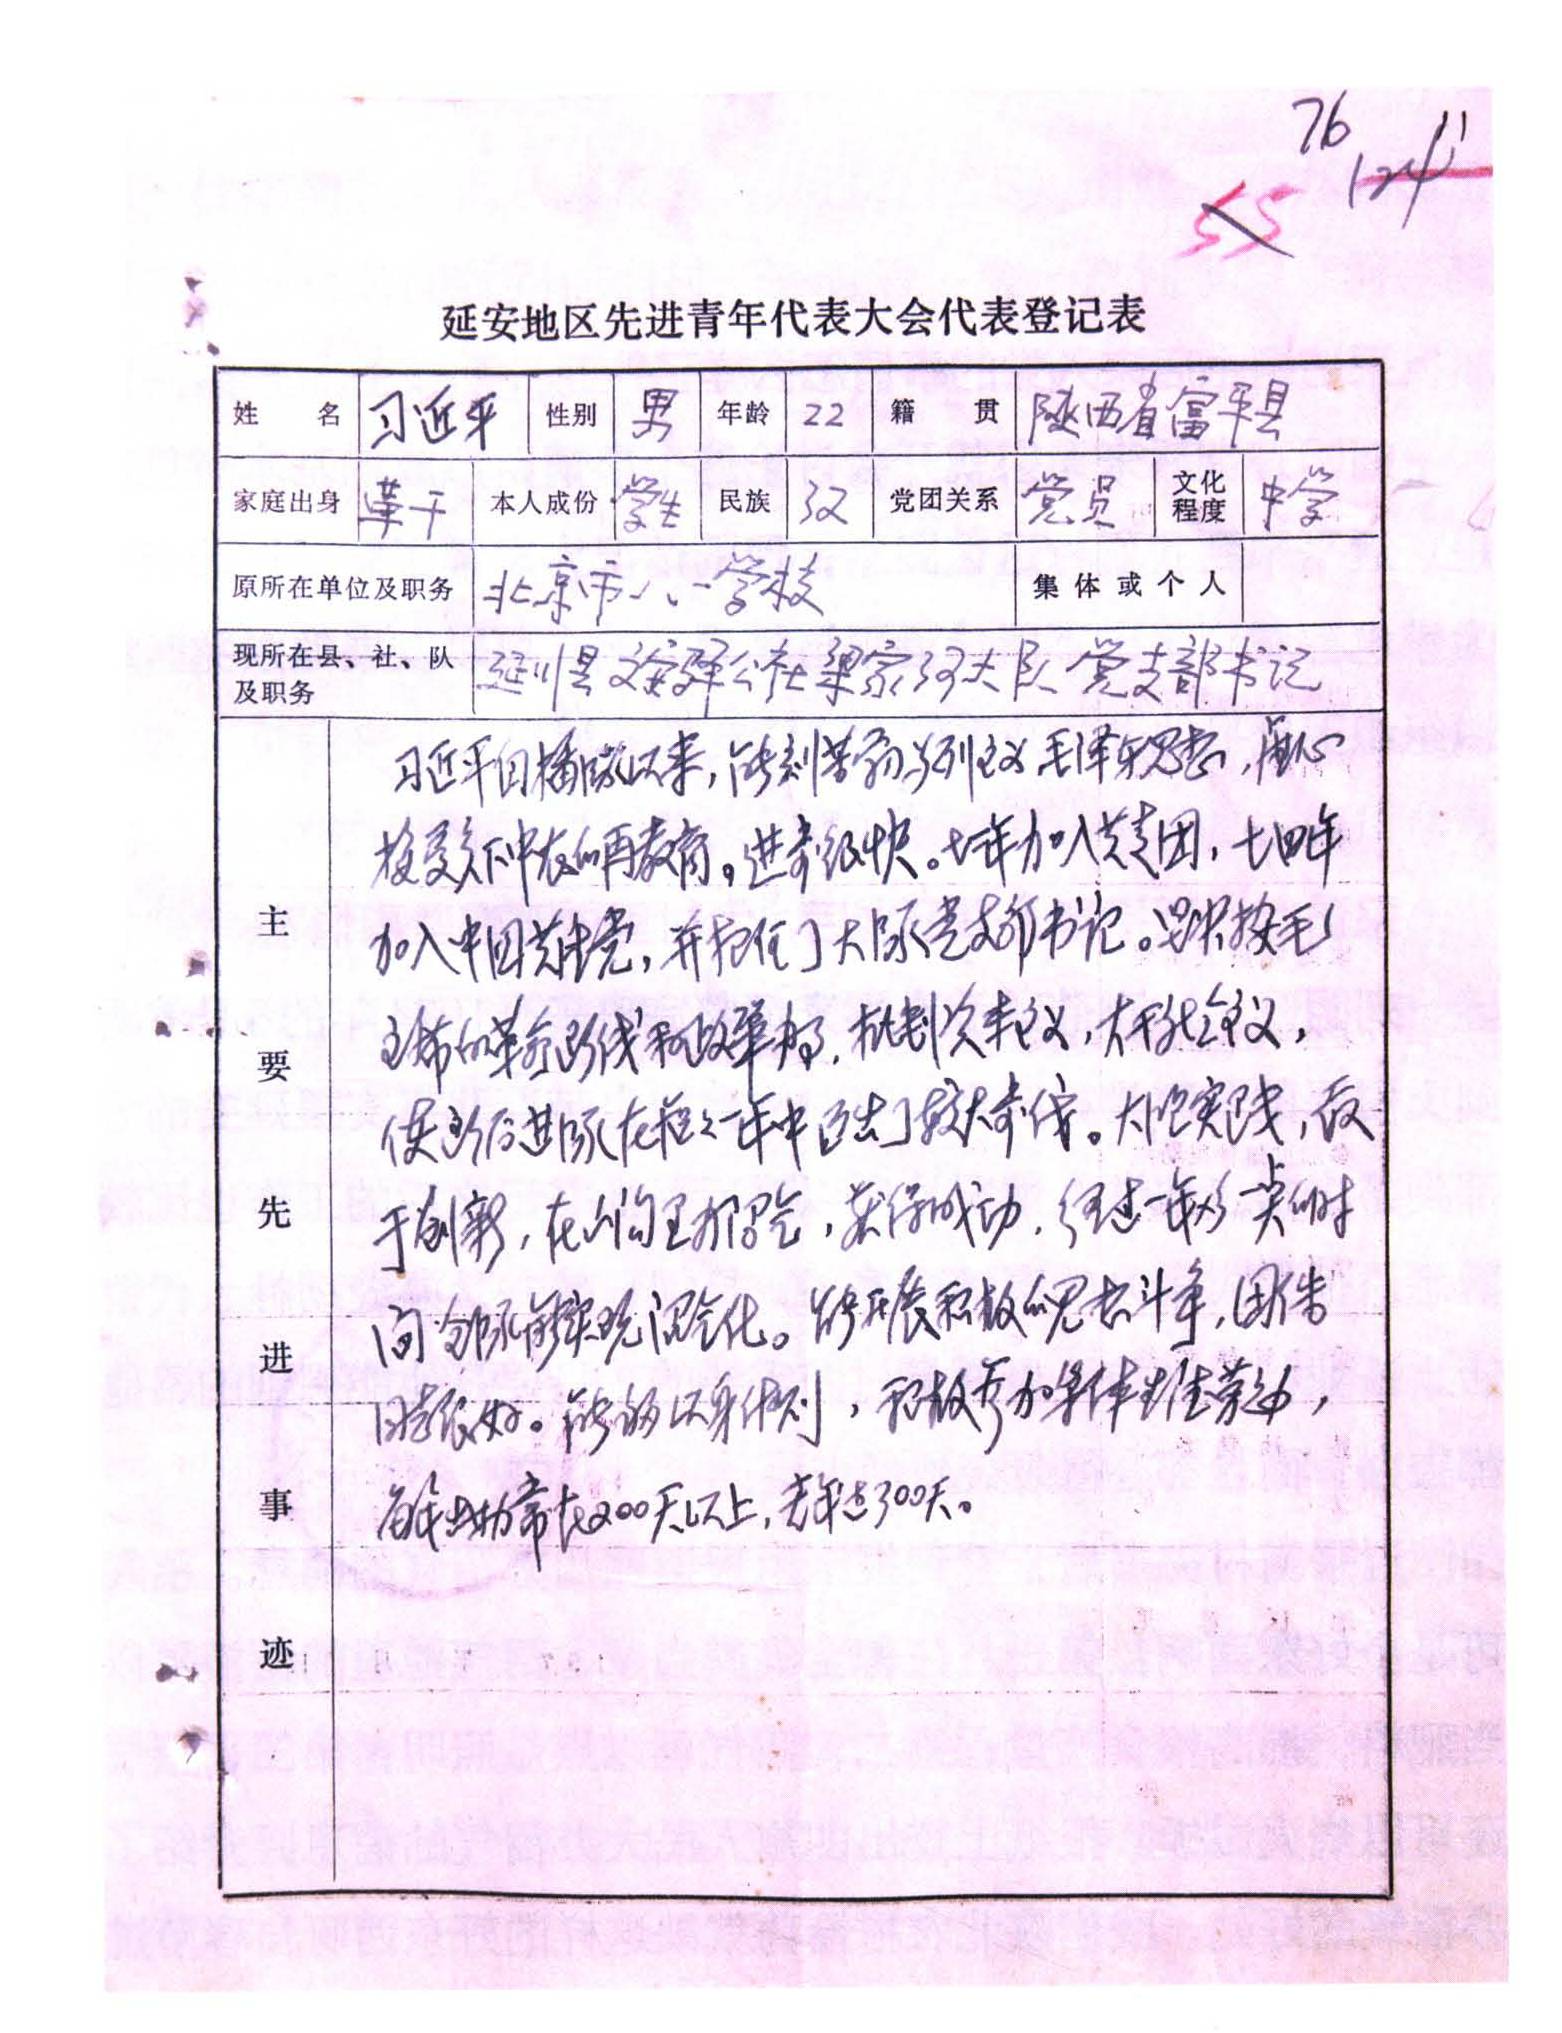 76
124
55
延安地区先进青年代表大会代表登记表
姓名 习近平 性别 男 年龄 22 籍贯 陕西省富平县
家庭出身 革干 本人成份 学生 民族 汉 党团关系 党员 文化程度 中学
原所在单位及职务 北京市八一学校 集体或个人
现所在县、社、队及职务 延川县文安驿公社梁家河大队党支部书记
主要先进事迹
习近平自插队以来,能刻苦学习马列主义毛泽东思想,虚心
接受贫下中农的再教育。进步很快。七三年加入共青团,七四年
加入中国共产党,并担任了大队党支部书记。坚决按毛
主席的革命路线和政策办事,批判资本主义,大干社会主义,
使后进队在短短一年中迈出了较大步伐。大胆实践,敢
于创新,在山沟里办沼气,获得成功,经过一年多一点的时
间全队能实现沼气化。能开展积极的思想斗争,团结
同志很好。能够以身作则,积极参加集体生产劳动,
每年出勤常在200天以上,去年达300天。